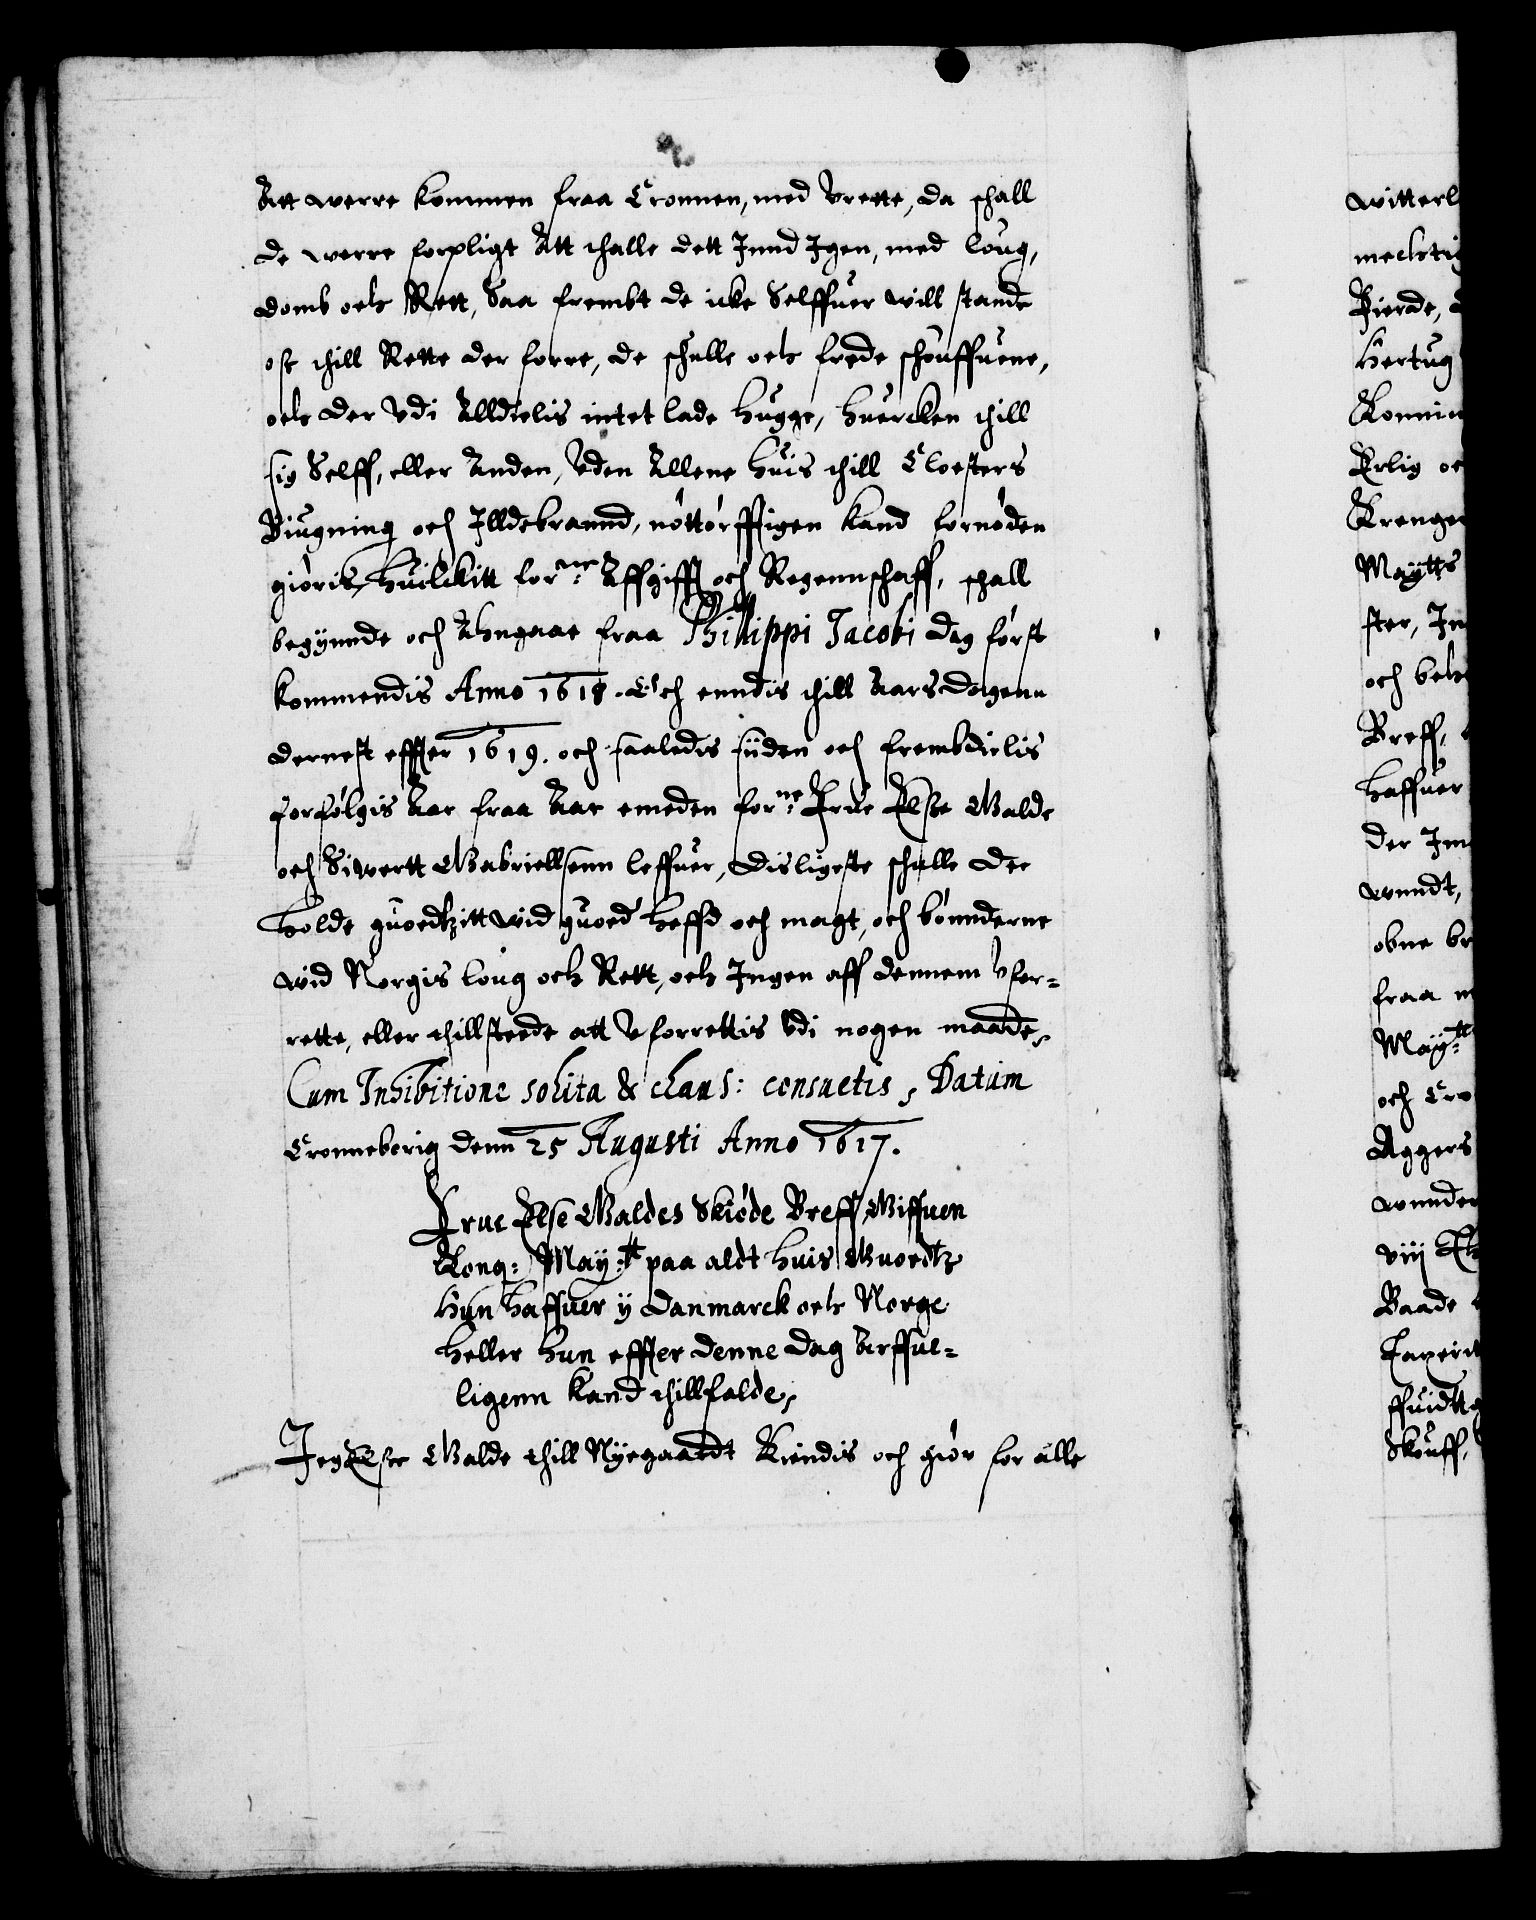 Att werre kommen fraa Cronnen, med Vrette, da schall
de werre forpligt Att thalle dett Jnnd Jgen, med loug,
domb och Rett, Saa frembt de icke Selffuer will stande
oss thill Rette der forre, de schulle och frede schouffuene,
och der Vdi Alldielis intet lade hugge, huercken thill
sig Selff, eller Anden, Vden Allene huis thill Closters
Biugning och Jlldebrannd, nöttörfftigen kand fornöden
giöris, huilckitt forne: Affgifft och Regennschaff, schall
begynnde och Ahngaae fraa Philippi Jacobi dag först
kommendis Anno 1618. Och enndis thill Aarsdagenn
dernest effter 1619. och saaledis siiden och frembdielis
forfölgis Aar fraa Aar emeden forne: Frue Else Galde
och Siwertt Gabriellsenn leffuer, Disligeste schulle dee
holde guodtzitt wid guoed heffd och magt, och bönnderne
wid Norgis loug och Rett, och Jngen aff dennem Vfor-
rette, eller thillsteede att Vforrettis Vdi nogen maade,
Cum Inhibitione solita & claus: consuetis, Datum
Cronneborig denn 25 Augusti Anno 1617.
Frue Else Galdes Skiöde Breff, Giffuen
Kong: May:tt paa aldt huis Guodtz
Hun haffuer y Danmarck och Norge
heller hun effter denne dag Arffue-
ligenn kand thillfalde,
Jeg Else Galde thill Nyegaardt Kiendis och giör for alle
witterl
mechti
Fierde,
Hertug
Konnin
Erlig oc
Krenge
Maytts
ster, In
och bek
Breff,
haffuer
der Im
wundt,
obne br
fraa m
May:tt
och Cro
Aggers
wunder
viij
Baade
Taperit
ffuidtt
Skouff,